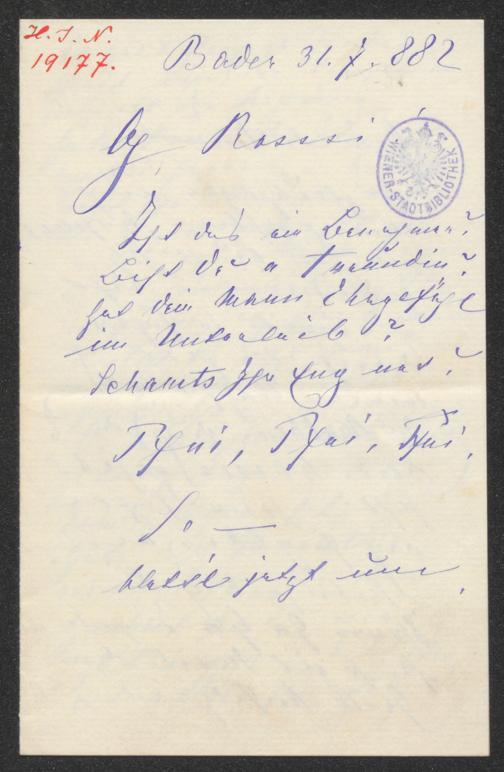 H. I. N.
19177.
Baden 31. 7. 882
WIENER-STADTBIBLIOTHEK
O Rosssi
Ist das ein Benehmen?
Bist Du a Freundin?
hat dein Mann Ehrgefühl
im Unterleib?
Schamts Ihr Eng net?
Pfui, Pfui, Pfui,
So —
blattle jetzt um.